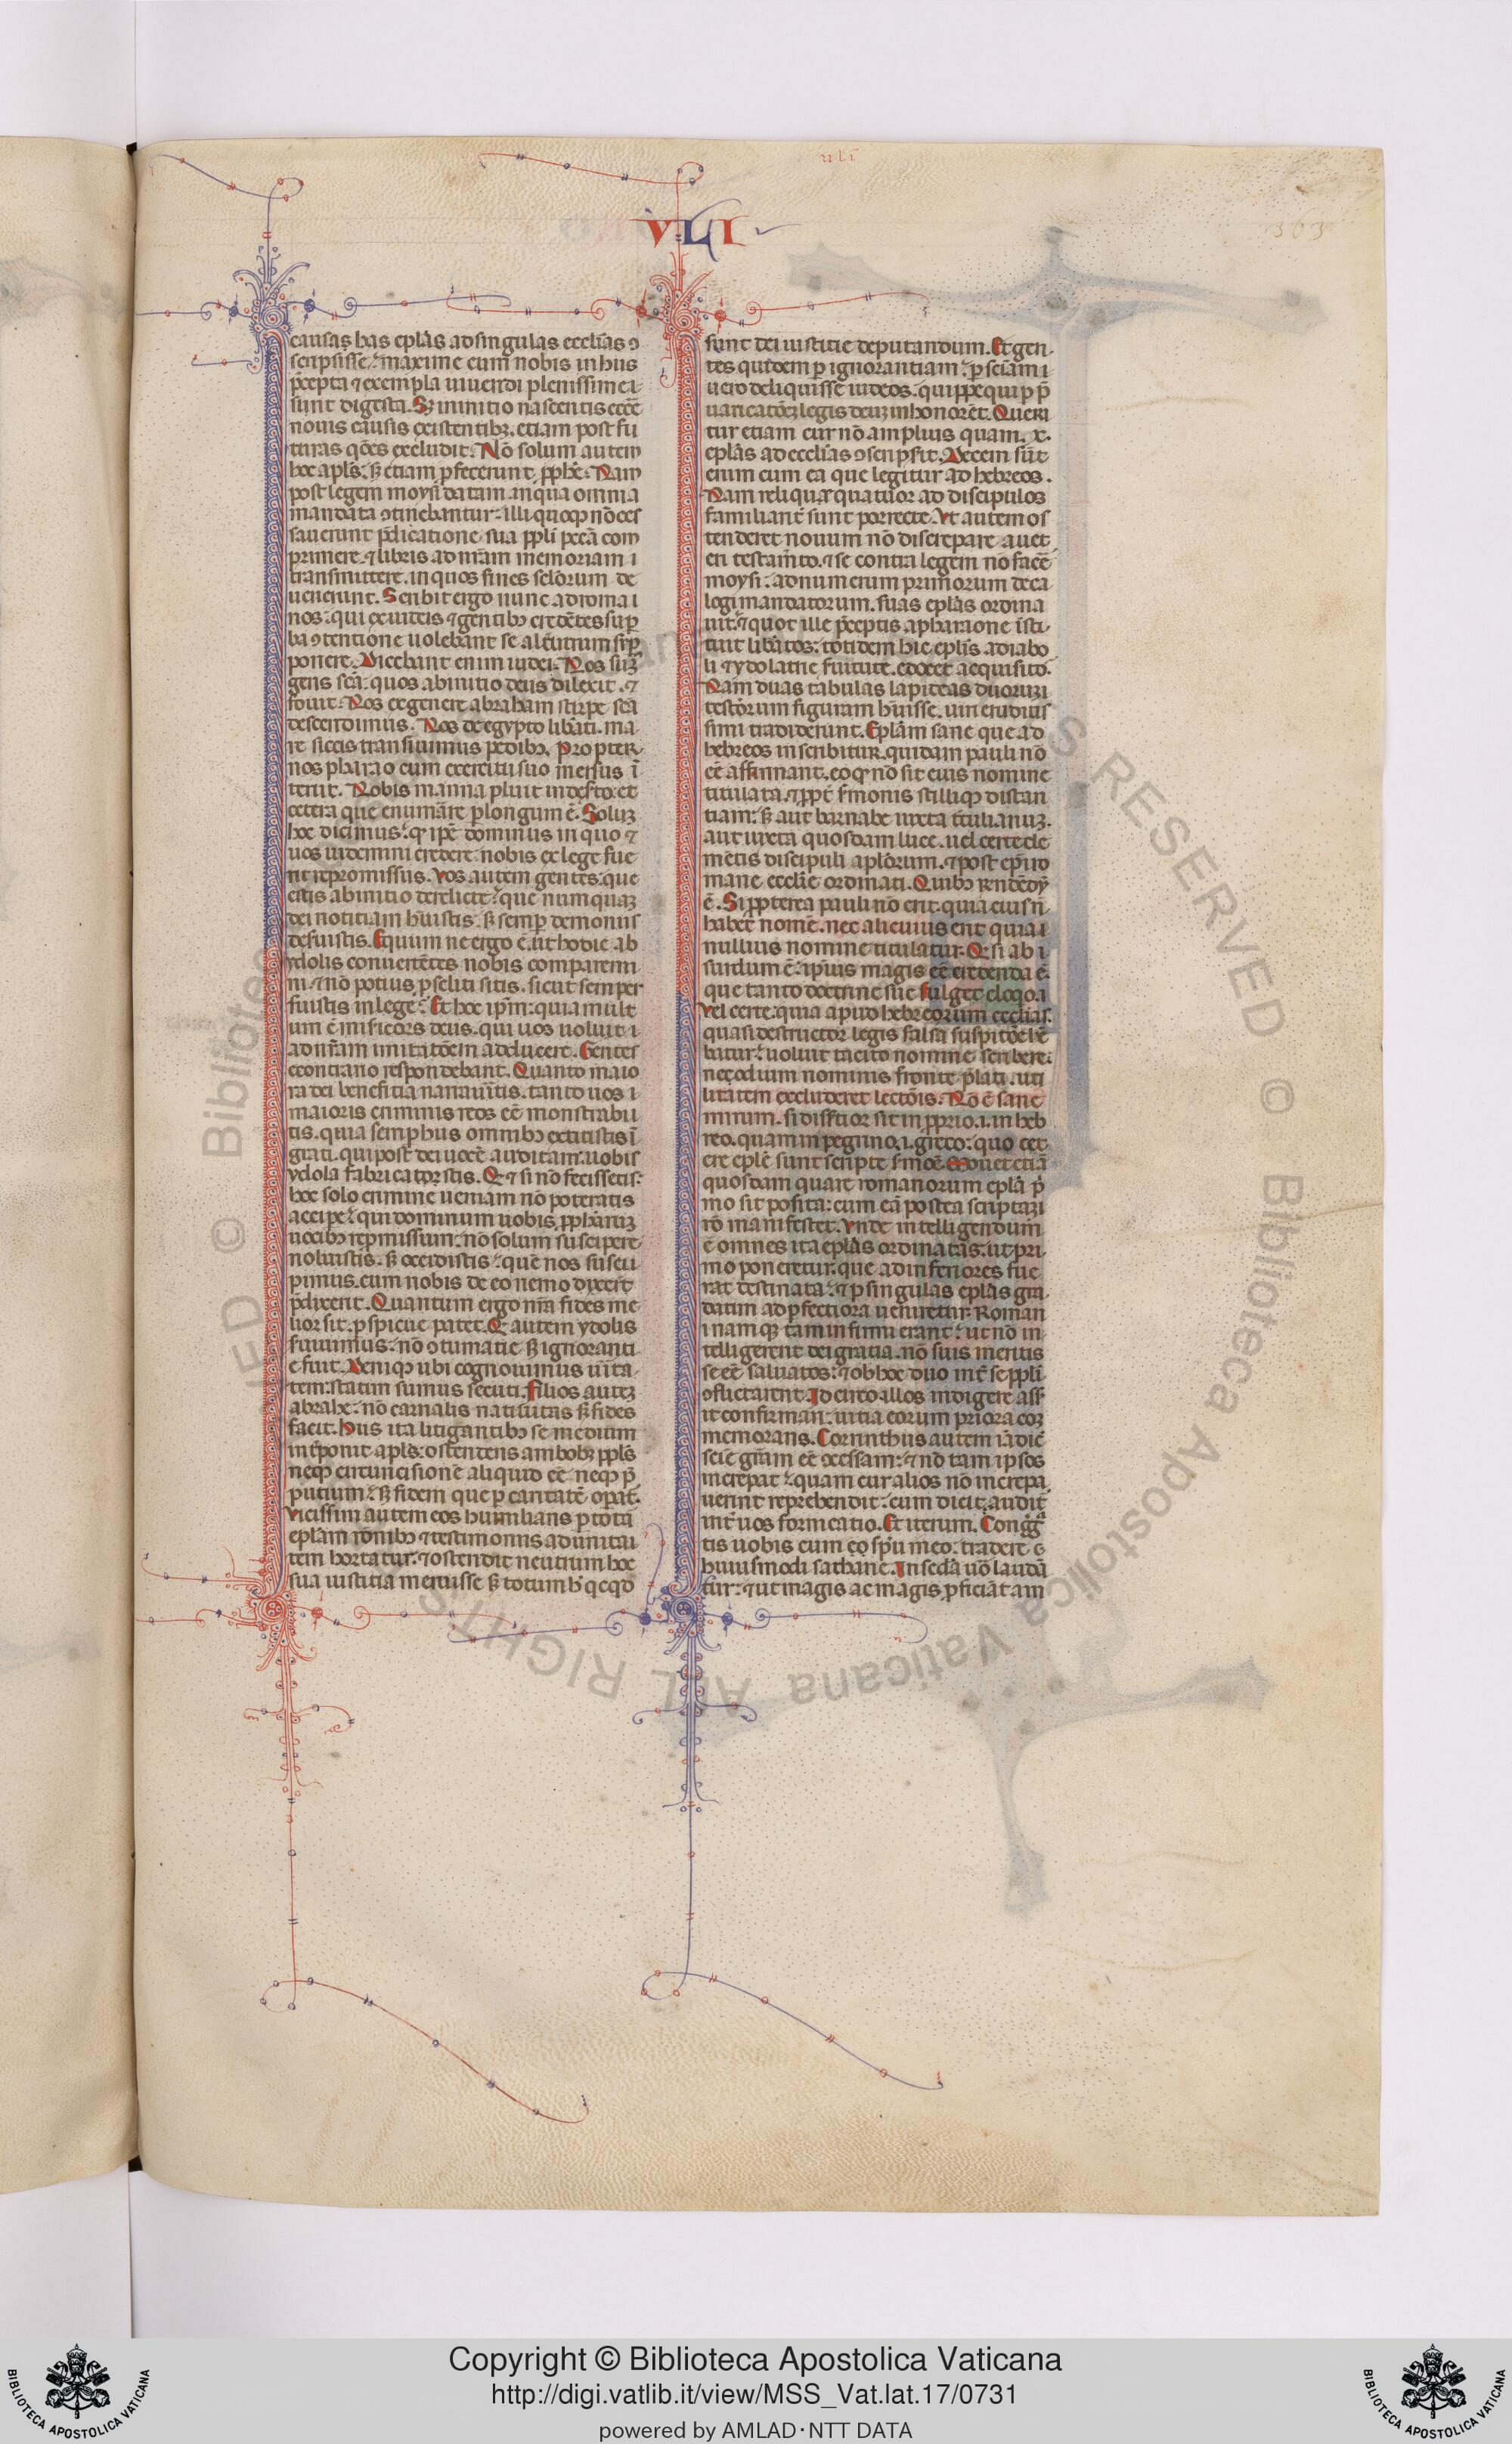 ulı̄
VLI
303
causas has ep̄las ad singulas ecclīas ꝯ
scripsisse. maxime cum nobis in huis
p̄cepta ⁊ exempla uiuendi plenissime i
sunt digesta. Sꝫ in initio nascentis ecc̄e
nouis causis existentibꝫ. etiam post fu
turas q̄ōes excludit. Nō solum autem
hoc apl̄s. sꝫ etiam ꝓfecerunt ꝓph̄e. Nam
post legem moysi datam in qua omnia
mandata ꝯtinebantur. illi quoqꝫ nō ces
sauerunt p̄dicatione sua pplī pcc̄a com
primere. ⁊ libris ad nr̄am memoriam i
transmittere. in quos fines sclōrum de
uenerunt. Scribit ergo nunc ad roma i
nos. qui ex iudeis ⁊ gentibꝫ credētes suꝑ
ba ꝯtentione uolebant se alterutrum suꝑ
ponere. Dicebant enim iudei. Nos sumꝰ
gens scā. quos ab initio deus dilexit. ⁊
fouit. Nos ex genere abraham stirpe scā
descendimus. Nos de egypto libāti. ma
re siccis transiuimus pedibꝫ. Propter
nos pharao cum exercitu suo mersus ī
teriit. Nobis manna pluit in desʳto. et
cetera que enumāre plongum ē. Solūꝫ
hoc dicimus. qꝫ ipē dominus in quo ⁊
uos uidemini credere. nobis ex lege fue
rit repromissus. Vos autem gentes. que
estis ab initio derelicte. que numquaꝫ
dei notitiam hūistis. sꝫ semꝑ demoniis
desuistis. Equum ne ergo ē. ut hodie ab
ydolis conuertētes nobis comparemi
ni. ⁊ nō potius ꝓseliti sitis. sicut semper
fuistis in lege. Et hoc ip̄m. quia mult
um ē misʳicors deus. qui uos uoluit i
ad nr̄am imitatōem adducere. Gentes
econtrario respondebant. Quanto maio
ra dei beneficia narrauītis. tanto uos i
maioris criminis reos eē monstrabi
tis. quia semꝑ huis omnibꝫ extitistis ī
grati. qui post dei uocē auditam. uobis
ydola fabricatorstis. Qꝫ ⁊ si nō fecissetis.
hoc solo crimine ueniam nō poteratis
accipe. qui dominum uobis ꝓph̄arūꝫ
uocibꝫ repmissum. nō solum suscipere
noluistis. sꝫ occidistis. quē nos susci
pimus. cum nobis de eo nemo dixerit
p̄dixerit. Quantum ergo nr̄a fides me
lior sit. ꝑspicue patet. Qꝫ autem ydolis
suuimus. nō ꝯtumatie sꝫ ignoranti
e fuit. Deniqꝫ ubi cognouimus uīta
tem. statim sumus secuti. Filios auteꝫ
abrahe. nō carnalis natiuitas sꝫ fides
facit. Huis ita litigantibꝫ se medium
int̄ponit apl̄s. ostendens ambobꝫ ppl̄s
neqꝫ circuncisionē aliquid eē. neqꝫ p̄
putium. sꝫ fidem que ꝑ caritatē opat̄.
Vicissim autem eos humilians ꝑ totā
ep̄lam rōnibꝫ ⁊ testimoniis ad unitā i
tem hortatur. ⁊ ostendit neutrum hoc
sua iustitia meruisse sꝫ totum h̄ qcqd
sunt dei iustitie deputandum. Et gen
tes quidem ꝑ ignorantiam. ꝑ sciam i
uero deliquisse iudeos. quippe qui ꝑ p̄
uaricatōeꝫ legis deuꝫ inhonorēt. Queri
tur etiam cur nō amplius quam. x.
ep̄las ad ecclīas ꝯscripsit. Decem sūt
enim cum ea que legitur ad hebreos.
Nam relique quatuor ad discipulos
familiarit̄ sunt porrecte. Vt autem os
tenderet nouum nō discrepare a uet
eri testam̄to. ⁊ se contra legem nō facē
moysi. ad numerum primorum deca
logi mandatorum. suas ep̄las ordina
uit. ⁊ quot ille p̄ceptis a pharaone īsti
tuit libātos. totidem hic ep̄lis a diabo
li ⁊ ydolatrie suitute. edocet acquisito.
Nam duas tabulas lapideas duoruꝫ i
testōrum figuram hūisse. uiri eruditis
simi tradiderunt. Ep̄lam sane que ad
hebreos inscribitur. quidam pauli nō
eē affirmant. eo qꝫ nō sit eius nomine
titulata. ⁊ ꝓpt̄ sʳmonis stilliqꝫ distan
tiam. sꝫ aut barnabe iuxta tr̄tulianuꝫ.
aut iuxta quosdam luce. uel certe cle
mētis discipuli apl̄orum. ⁊ post ep̄i ro
mane ecclīe ordinati. Quibꝫ rn̄dendū
ē. Si ꝓpterea pauli nō erit. quia eius n̄
habet nomē. nec alicuius erit quia i
nullius nomine titulatur. Qꝫ si ab i
surdum ē. ipīus magis eē credenda ē.
que tanto doctrine sue fulget eloq̇o. ı
Vel certe. quia apud hebreorum ecclias.
quasi destructor legis falsa suspitōe h̄e
batur. uoluit tacito nomine scribere.
ne odium nominis fronte p̄lati. uti
litatem excluderet lectōis. Nō ē sane
mirum. si disertior sit in ꝓprio. i. in heb
reo. quam in pegrino. i. greco. quo cet
ere ep̄le sunt scripte sʳmōe. Mouet etiā
quosdam quare romanorum ep̄la p̄
mo sit posita. cum eā postea scriptaꝫ i
rō manifestet. Vnde intelligendum
ē omnes ita ep̄las ordinatas. ut pri
mo poneretur. que ad inferiores fue
rat destinata. ⁊ ꝑ singulas ep̄las gra
datim ad ꝑfectiora ueniretur. Roman
i namqꝫ tam infirmi erant. ut nō in
telligerent dei gratia. nō suis meritis
se eē saluatos. ⁊ ob hoc duo int̄ se pplī
ꝯflictarent. Idcirco illos indigere ass
it confirmari. uitia eorum priora coꝫ
memorans. Corinthiis autem iā dic̄
scie gr̄am eē ꝯcessam. ⁊ nō tam ipsos
increpat. quam cur alios nō increpa
uerint reprehendit. cum dicit. audit̄
int̄ uos fornicatio. Et iterum. Congḡa
tis uobis cum eo sp̄u meo. tradere e
huiusmodi sathane. In secda uō laudā
tur. ⁊ ut magis ac magis ꝓficiāt am
© Biblioteca Apostolica Vaticana ALL RIGHTS RESERVED
Copyright © Biblioteca Apostolica Vaticana
http://digi.vatlib.it/view/MSS_Vat.lat.17/0731
powered by AMLAD·NTT DATA
BIBLIOTECA APOSTOLICA VATICANA
BIBLIOTECA APOSTOLICA VATICANA